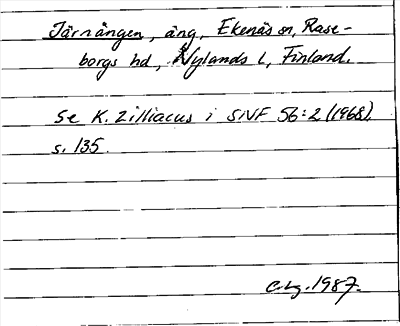 Järnängen, äng, Ekenäs sn, Rase-
borgs hd, Nylands l, Finland.
Se K. Zilliacus i SNF 56:2 (1968),
s. 135.
1987.